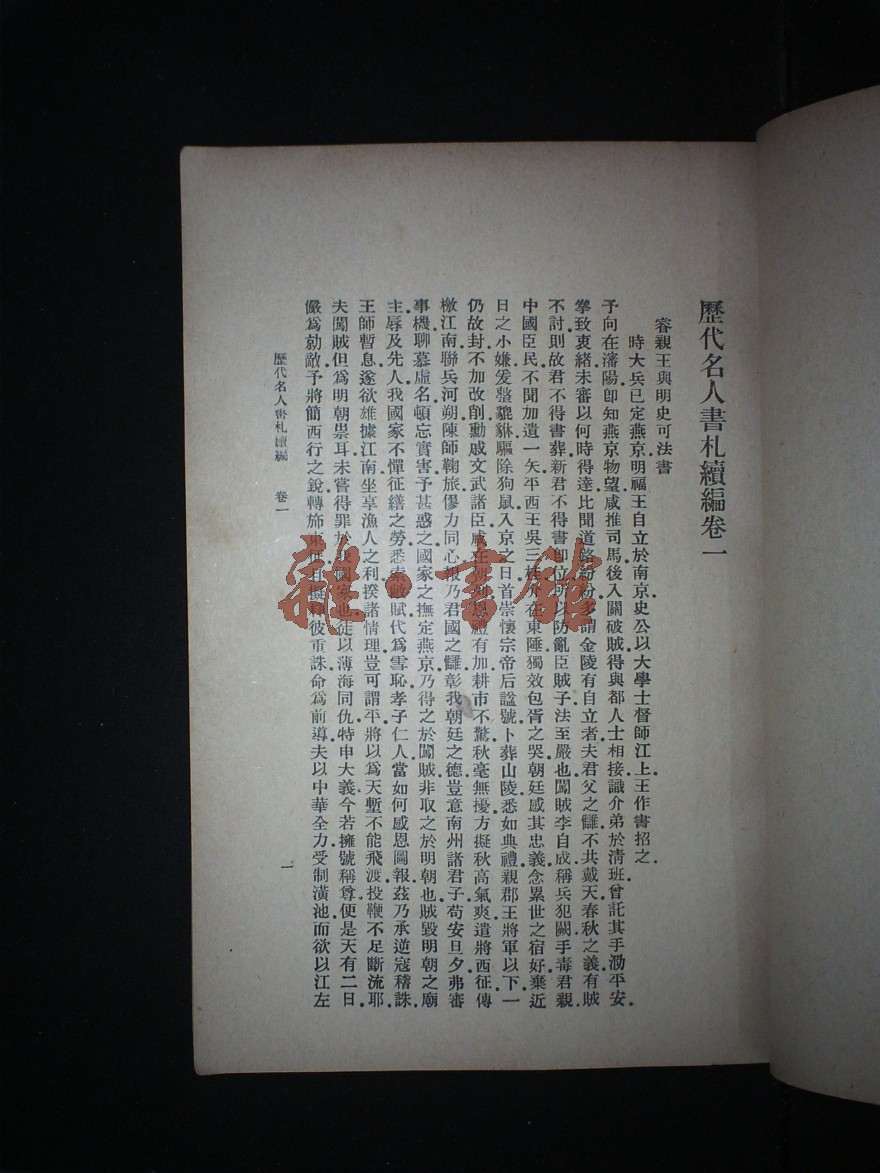 歷代名人書札續編卷一
睿親王與明史可法書
時大兵已定燕京明福王自立於南京史公以大學士督師江上王作書招之
予向在瀋陽卽知燕京物望咸推司馬後入關破賊得與都人士相接識介弟於淸班曾託其手泐平安
拳致衷緒未審以何時得達比聞道路紛紛多謂金陵有自立者夫君父之讎不共戴天春秋之義有賊
不討則故君不得書葬新君不得書卽位所以防亂臣賊子法至嚴也闖賊李自成稱兵犯闕手毒君親
中國臣民不聞加遺一矢平西王吳三桂介在東陲獨效包胥之哭朝廷感其忠義念累世之宿好棄近
日之小嫌爰整貔貅驅除狗鼠入京之日首崇懷宗帝后諡號卜葬山陵悉如典禮親郡王將軍以下一
仍故封不加改削勳戚文武諸臣咸在朝列恩禮有加耕市不驚秋毫無擾方擬秋高氣爽遣將西征傳
檄江南聯兵河朔陳師鞠旅僇力同心報乃君國之讎彰我朝廷之德豈意南州諸君子苟安旦夕弗審
事機聊慕虛名頓忘實害予甚惑之國家之撫定燕京乃得之於闖賊非取之於明朝也賊毀明朝之廟
主辱及先人我國家不憚征繕之勞悉索敝賦代爲雪恥孝子仁人當如何感恩圖報茲乃承逆寇稽誅
王師暫息遂欲雄據江南坐享漁人之利揆諸情理豈可謂平將以爲天塹不能飛渡投鞭不足斷流耶
夫闖賊但爲明朝祟耳未嘗得罪於我國家也徒以薄海同仇特申大義今若擁號稱尊便是天有二日
儼爲勍敵予將簡西行之銳轉旆東征且擬釋彼重誅命爲前導夫以中華全力受制潢池而欲以江左
歷代名人書札續編 卷一
一
雜·書館